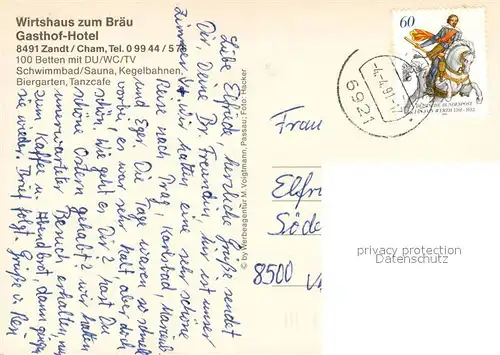 Wirtshaus zum Bräu
Gasthof-Hotel
8491 Zandt / Cham, Tel. 0 99 44 / 5 78
100 Betten mit DU/WC/TV
Schwimmbad/Sauna, Kegelbahnen,
Biergarten, Tanzcafe
© by Werbeagentur M. Voigtmann, Passau; Foto: Hacker
Liebe Elfriede, herzliche Grüße sendet
Dir, Deine Br. Freundin, hier ist unser
Zimmer. Wir hatten eine sehr schöne
Reise nach Prag, Karlsbad,
und Eger. Die Tage waren so schnell
vorbei, es war sehr kalt aber doch
schön. Wie geht es Dir? Hast Du
schöne Ostern gehabt? Wir hatten
unerwarteter Besuch erhalten,
zum Kaffee u. Abendbrot, dann gingen
sie wieder. Brief folgt. Grüße v.
60
DEUTSCHE BUNDESPOST
6921
Frau
Elfr
Söde
8500
privacy protection
Datenschutz